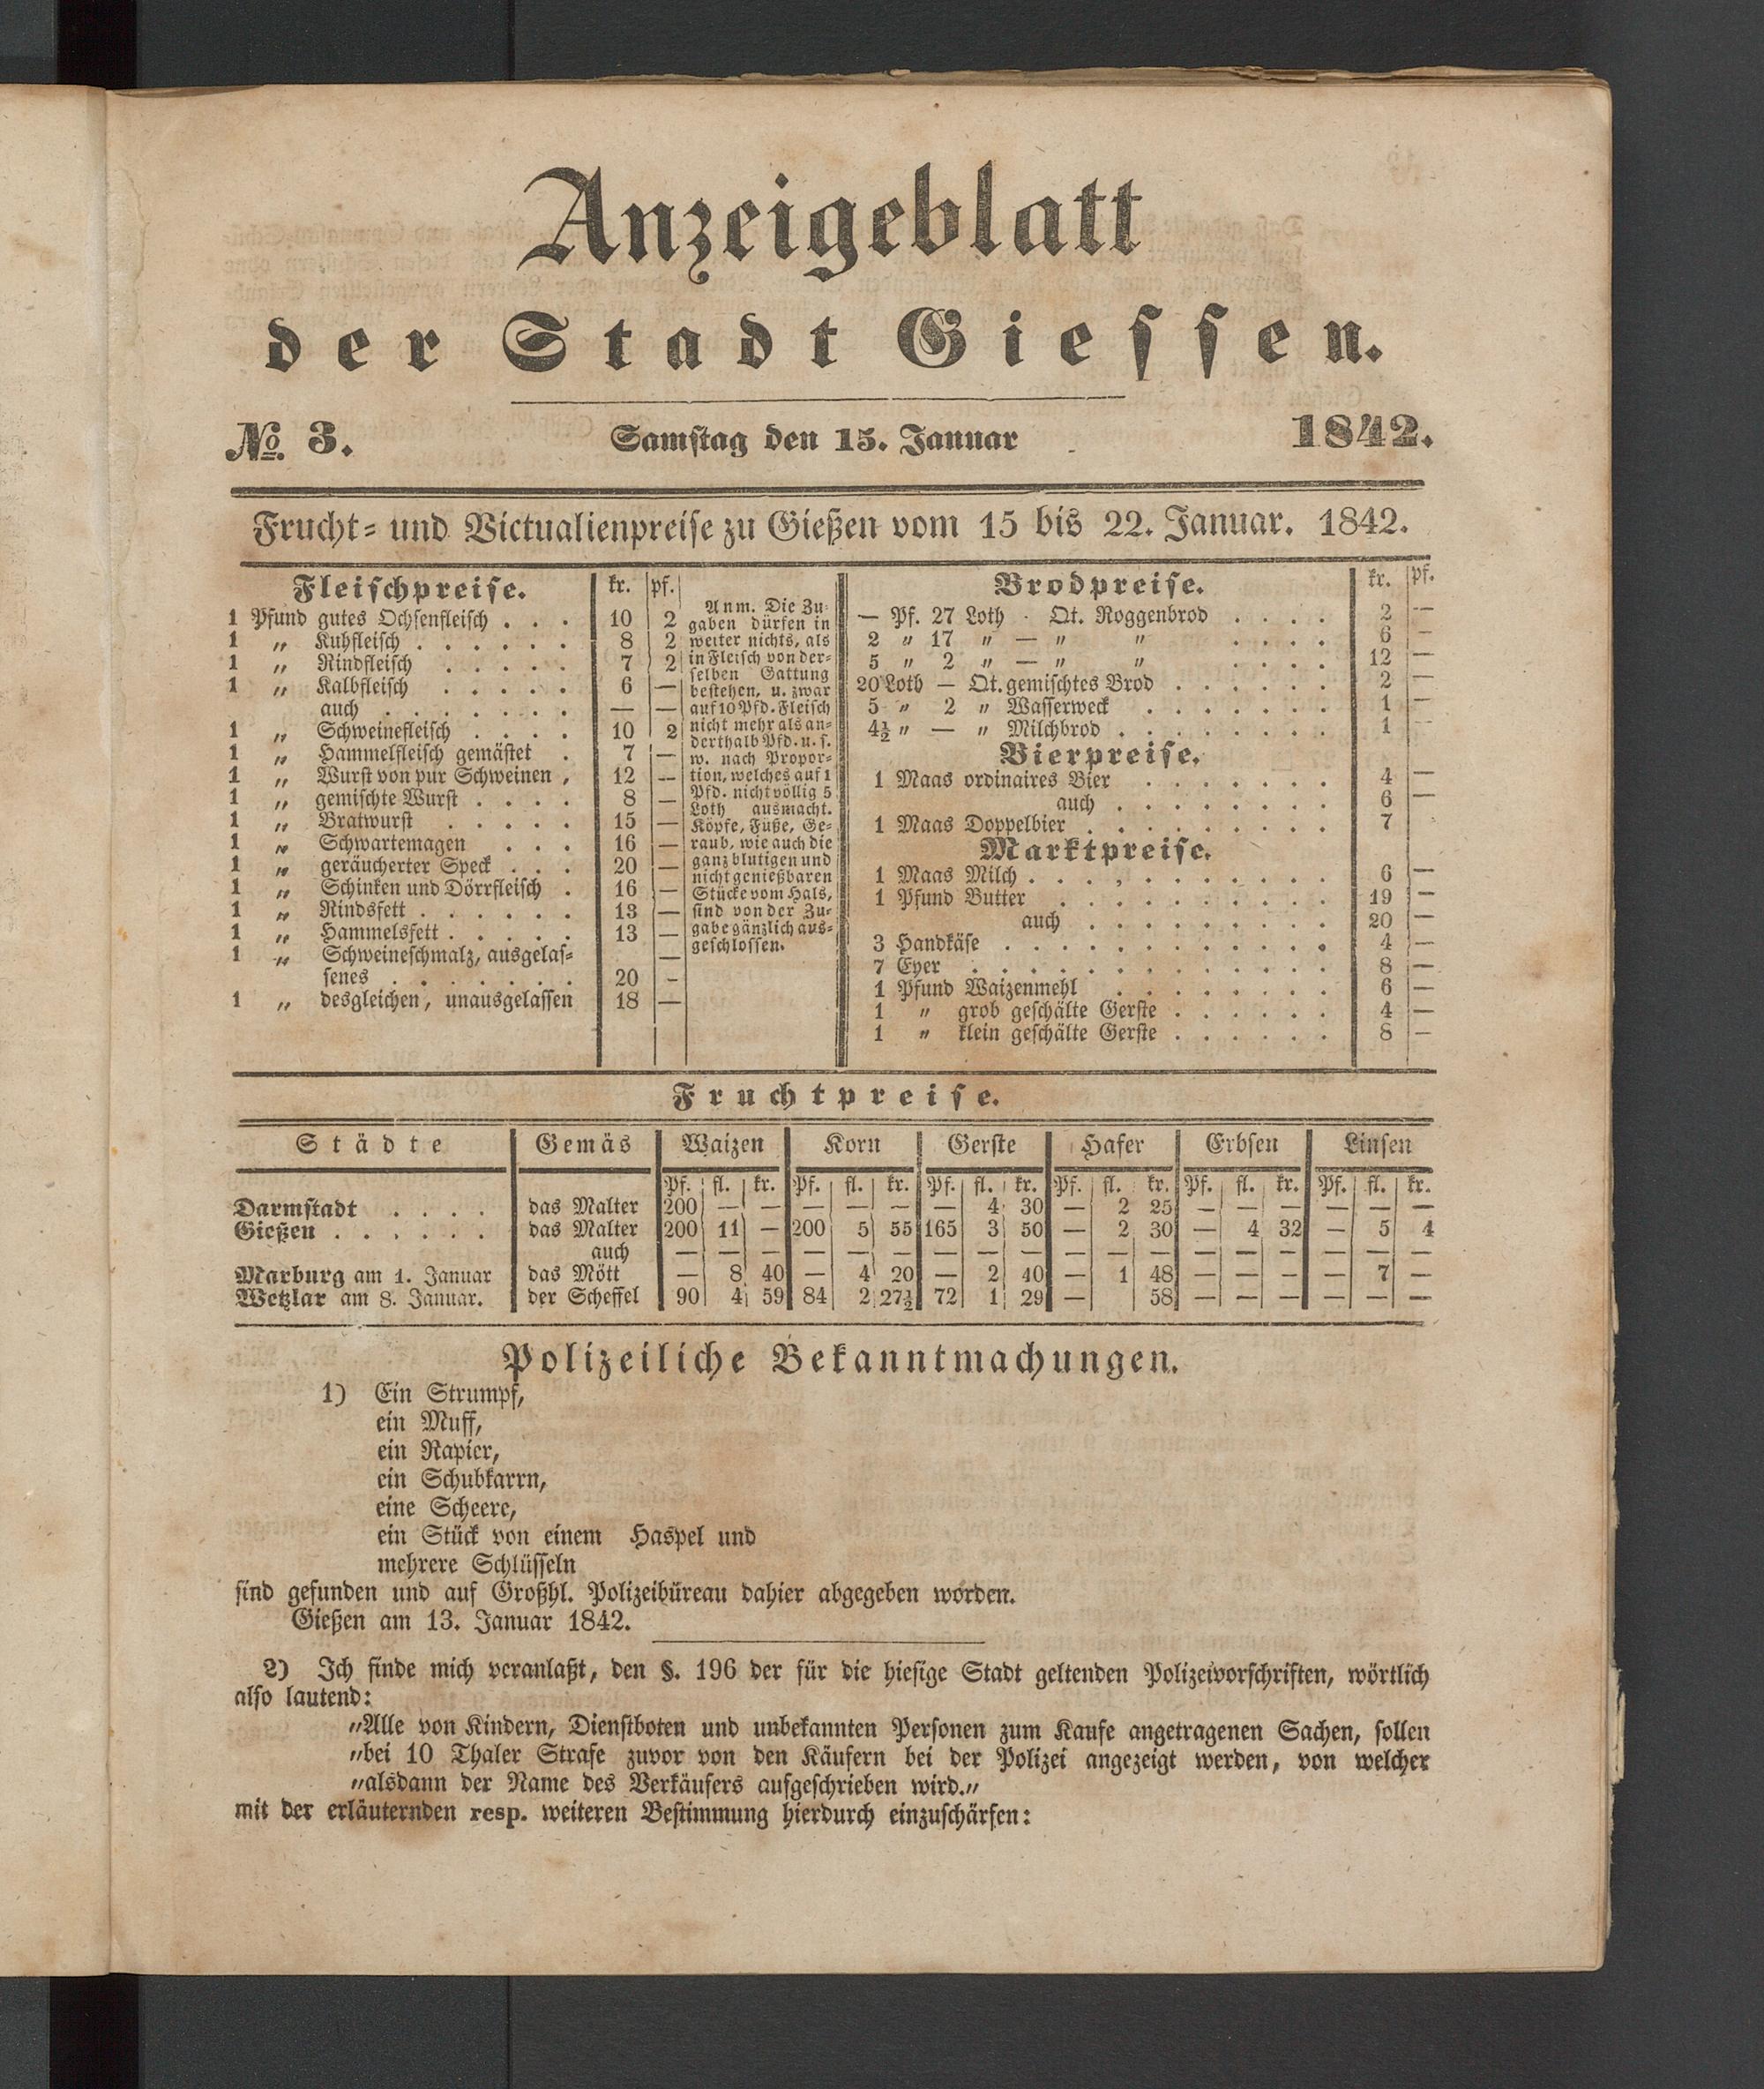 Anzeigeblatt
der Stadt Giessen.
No. 3. Samstag den 15. Januar 1842.
Frucht- und Victualienpreise zu Gießen vom 15 bis 22. Januar. 1842.
Fleischpreise. kr. pf.
1 Pfund gutes Ochsenfleisch . . . 10 2
1 „ Kuhfleisch . . . . . . 8 2
1 „ Rindfleisch . . . . . 7 2
1 „ Kalbfleisch . . . . . 6 —
auch . . . . . . . — —
1 „ Schweinefleisch . . . . 10 2
1 „ Hammelfleisch gemästet . 7 —
1 „ Wurst von pur Schweinen , 12 —
1 „ gemischte Wurst . . . . 8 —
1 „ Bratwurst . . . . . 15 —
1 „ Schwartemagen . . . 16 —
1 „ geräucherter Speck . . . 20 —
1 „ Schinken und Dörrfleisch . 16 —
1 „ Rindsfett . . . . . . 13 —
1 „ Hammelsfett . . . . . 13 —
1 „ Schweineschmalz, ausgelas- —
senes . . . . . . . 20 -
1 „ desgleichen, unausgelassen 18 —
Anm. Die Zu-
gaben dürfen in
weiter nichts, als
in Fleisch von der-
selben Gattung
bestehen, u. zwar
auf 10 Pfd. Fleisch
nicht mehr als an-
derthalb Pfd. u. s.
w. nach Propor-
tion, welches auf 1
Pfd. nicht völlig 5
Loth ausmacht.
Köpfe, Füße, Ge-
raub, wie auch die
ganz blutigen und
nicht genießbaren
Stücke vom Hals,
sind von der Zu-
gabe gänzlich aus-
geschlossen.
Brodpreise. kr. pf.
— Pf. 27 Loth · Qt. Roggenbrod . . . . 2 —
2 „ 17 „ — „ „ . . . . 6 —
5 „ 2 „ — „ „ . . . . 12 —
20 Loth — Qt. gemischtes Brod . . . . . . 2 —
5 „ 2 „ Wasserweck . . . . . . . 1 —
4½ „ — „ Milchbrod . . . . . . . . 1 —
Bierpreise.
1 Maas ordinaires Bier . . . . . . . 4 —
auch . . . . . . . . 6 —
1 Maas Doppelbier . . . . . . . . . 7
Marktpreise.
1 Maas Milch . . . . . . . . . . . 6 —
1 Pfund Butter . . . . . . . . . . 19 —
auch . . . . . . . . . 20 —
3 Handkäse . . . . . . . . . . . . 4 —
7 Eyer . . . . . . . . . . . . . 8 —
1 Pfund Waizenmehl . . . . . . . . 6 —
1 „ grob geschälte Gerste . . . . . . 4 —
1 „ klein geschälte Gerste . . . . . . 8 —
Fruchtpreise.
Städte Gemäs Waizen Korn Gerste Hafer Erbsen Linsen
Pf. fl. kr. Pf. fl. kr. Pf. fl. kr. Pf. fl. kr. Pf. fl. kr. Pf. fl. kr.
Darmstadt . . . . das Malter 200 — — — — — — 4 30 — 2 25 — — — — — —
Gießen . . . . . . das Malter 200 11 — 200 5 55 165 3 50 — 2 30 — 4 32 — 5 4
auch — — — — — — — — — — — — — — — — — —
Marburg am 1. Januar das Mött — 8 40 — 4 20 — 2 40 — 1 48 — — — — 7 —
Wetzlar am 8. Januar. der Scheffel 90 4 59 84 2 27½ 72 1 29 — 58 — — — — — —
Polizeiliche Bekanntmachungen.
1) Ein Strumpf,
ein Muff,
ein Rapier,
ein Schubkarrn,
eine Scheere,
ein Stück von einem Haspel und
mehrere Schlüsseln
sind gefunden und auf Großhl. Polizeibüreau dahier abgegeben worden.
Gießen am 13. Januar 1842.
2) Ich finde mich veranlaßt, den §. 196 der für die hiesige Stadt geltenden Polizeivorschriften, wörtlich
also lautend:
„Alle von Kindern, Dienstboten und unbekannten Personen zum Kaufe angetragenen Sachen, sollen
„bei 10 Thaler Strafe zuvor von den Käufern bei der Polizei angezeigt werden, von welcher
„alsdann der Name des Verkäufers aufgeschrieben wird.„
mit der erläuternden resp. weiteren Bestimmung hierdurch einzuschärfen: